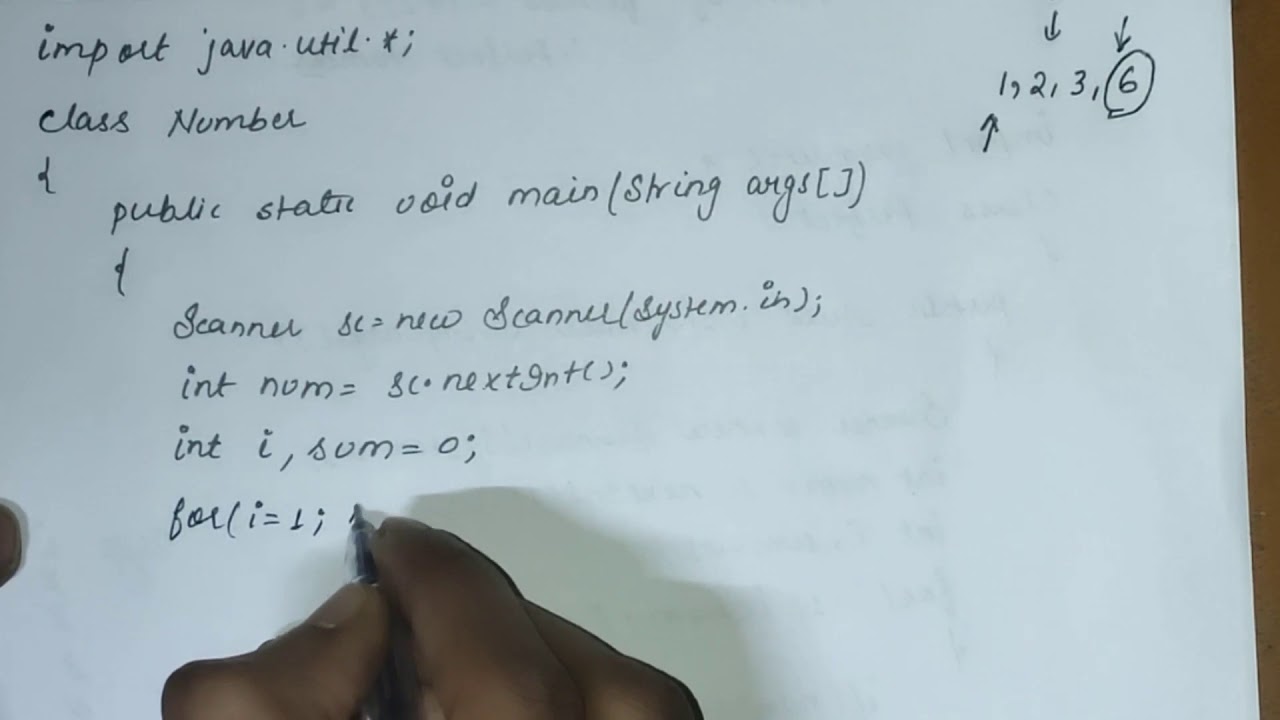 import java.util.*;
1, 2, 3, 6
class Number
{
public static void main(String args[])
{
Scanner sc=new Scanner(System.in);
int num= sc.nextInt();
int i, sum=0;
for(i=1;